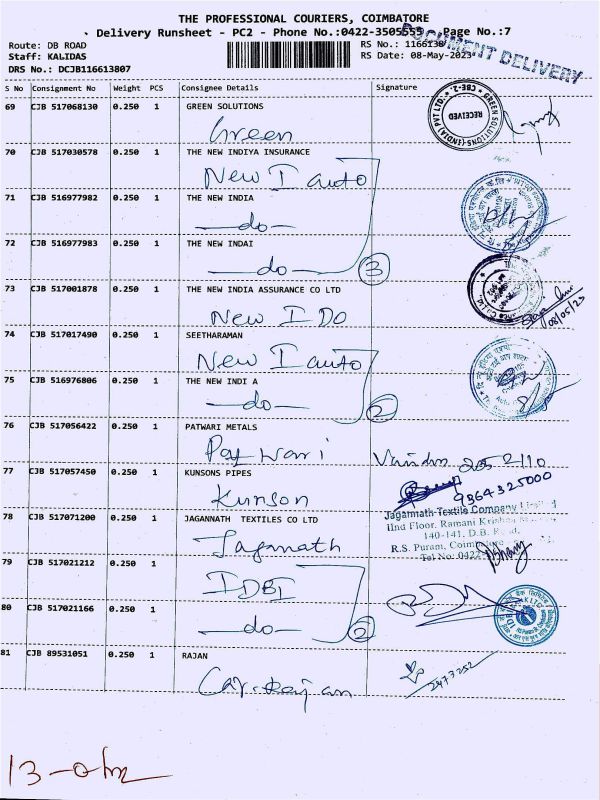 THE PROFESSIONAL COURIERS, COIMBATORE
Delivery Runsheet - PC2 - Phone No.:0422-3505555 Page No.:7
DOCUMENT DELIVERY
Route: DB ROAD
Staff: KALIDAS
DRS No.: DCJB116613807
RS No.: 1166138
RS Date: 08-May-2023
S No Consignment No Weight PCS Consignee Details Signature
69 CJB 517068130 0.250 1 GREEN SOLUTIONS
Green
GREEN SOLUTIONS (INDIA) PVT LTD. CBE-2. RECEIVED
70 CJB 517030578 0.250 1 THE NEW INDIYA INSURANCE
New I auto
71 CJB 516977982 0.250 1 THE NEW INDIA
-do-
72 CJB 516977983 0.250 1 THE NEW INDAI
-do- 3
73 CJB 517001878 0.250 1 THE NEW INDIA ASSURANCE CO LTD
New I DO
08/05/23
74 CJB 517017490 0.250 1 SEETHARAMAN
New I auto
75 CJB 516976806 0.250 1 THE NEW INDI A
-do- 2
76 CJB 517056422 0.250 1 PATWARI METALS
Patwari
77 CJB 517057450 0.250 1 KUNSONS PIPES
Kunson
9364325000
78 CJB 517071200 0.250 1 JAGANNATH TEXTILES CO LTD
Jagannath
Jagannath Textile Company Limited
IInd Floor, Ramani Krishna
140-141, D.B. Road,
R.S. Puram, Coimbatore
Tel No: 0422
79 CJB 517021212 0.250 1
IDBI
80 CJB 517021166 0.250 1
-do- 2
81 CJB 89531051 0.250 1 RAJAN
Rajan
2473252
13-